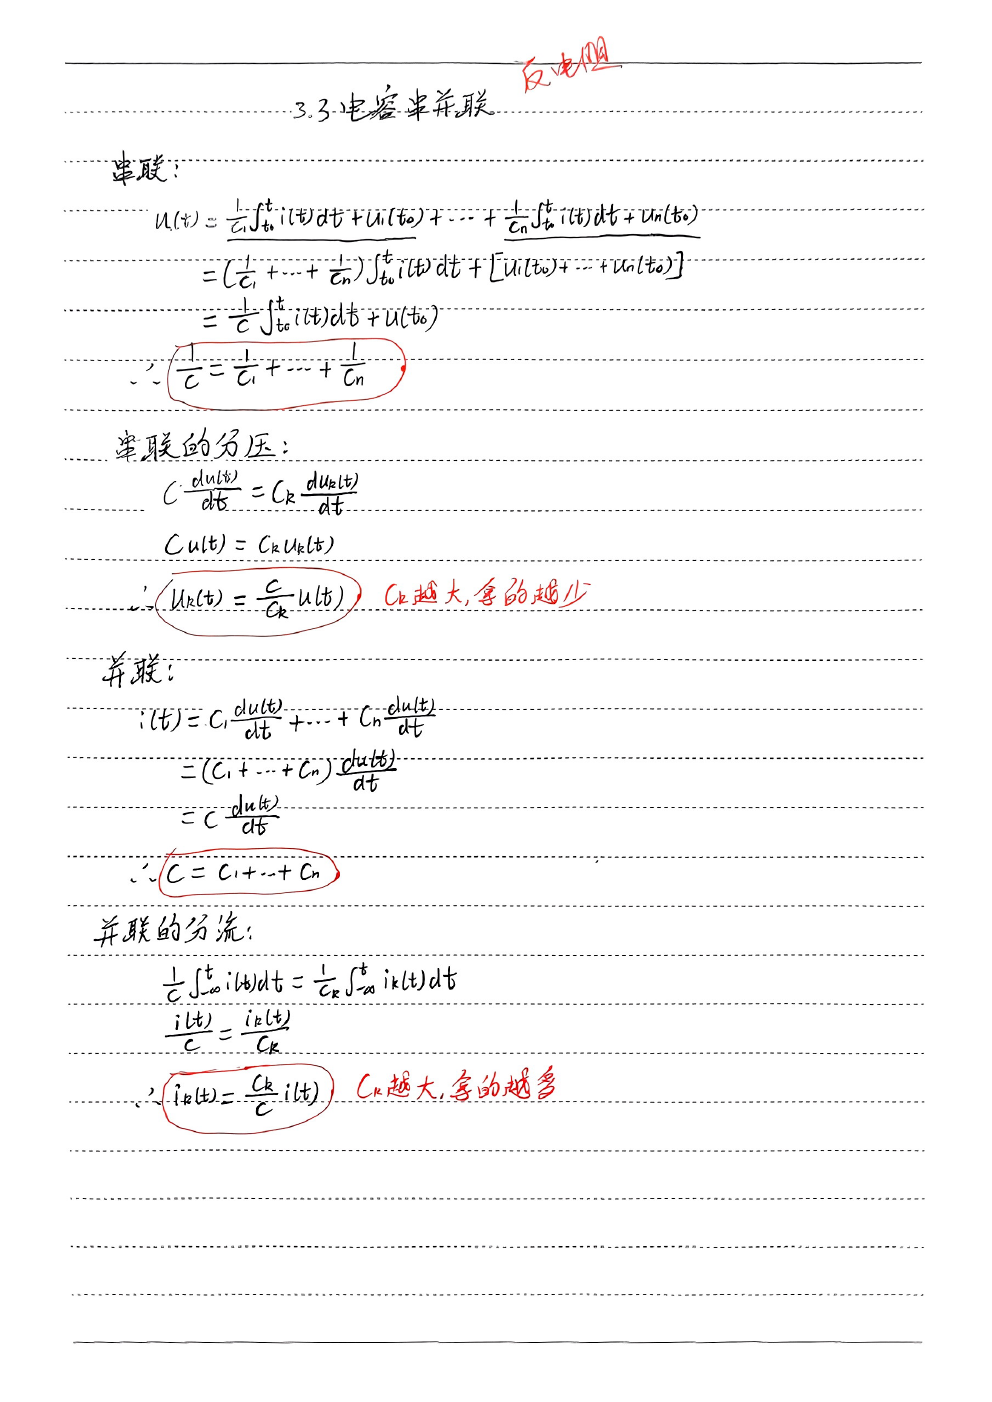 反电阻
3.3 电容串并联
串联:
u(t) = 1/C₁ ∫_{t₀}^{t} i(t)dt + u₁(t₀) + ··· + 1/Cₙ ∫_{t₀}^{t} i(t)dt + uₙ(t₀)
= (1/C₁ + ··· + 1/Cₙ) ∫_{t₀}^{t} i(t)dt + [u₁(t₀) + ··· + uₙ(t₀)]
= 1/C ∫_{t₀}^{t} i(t)dt + u(t₀)
∴ 1/C = 1/C₁ + ··· + 1/Cₙ
串联的分压:
C du(t)/dt = Cₖ duₖ(t)/dt
Cu(t) = Cₖuₖ(t)
∴ uₖ(t) = C/Cₖ u(t) Cₖ越大,拿的越少
并联:
i(t) = C₁ du(t)/dt + ··· + Cₙ du(t)/dt
= (C₁ + ··· + Cₙ) du(t)/dt
= C du(t)/dt
∴ C = C₁ + ··· + Cₙ
并联的分流:
1/C ∫_{-∞}^{t} i(t)dt = 1/Cₖ ∫_{-∞}^{t} iₖ(t)dt
i(t)/C = iₖ(t)/Cₖ
∴ iₖ(t) = Cₖ/C i(t) Cₖ越大,拿的越多